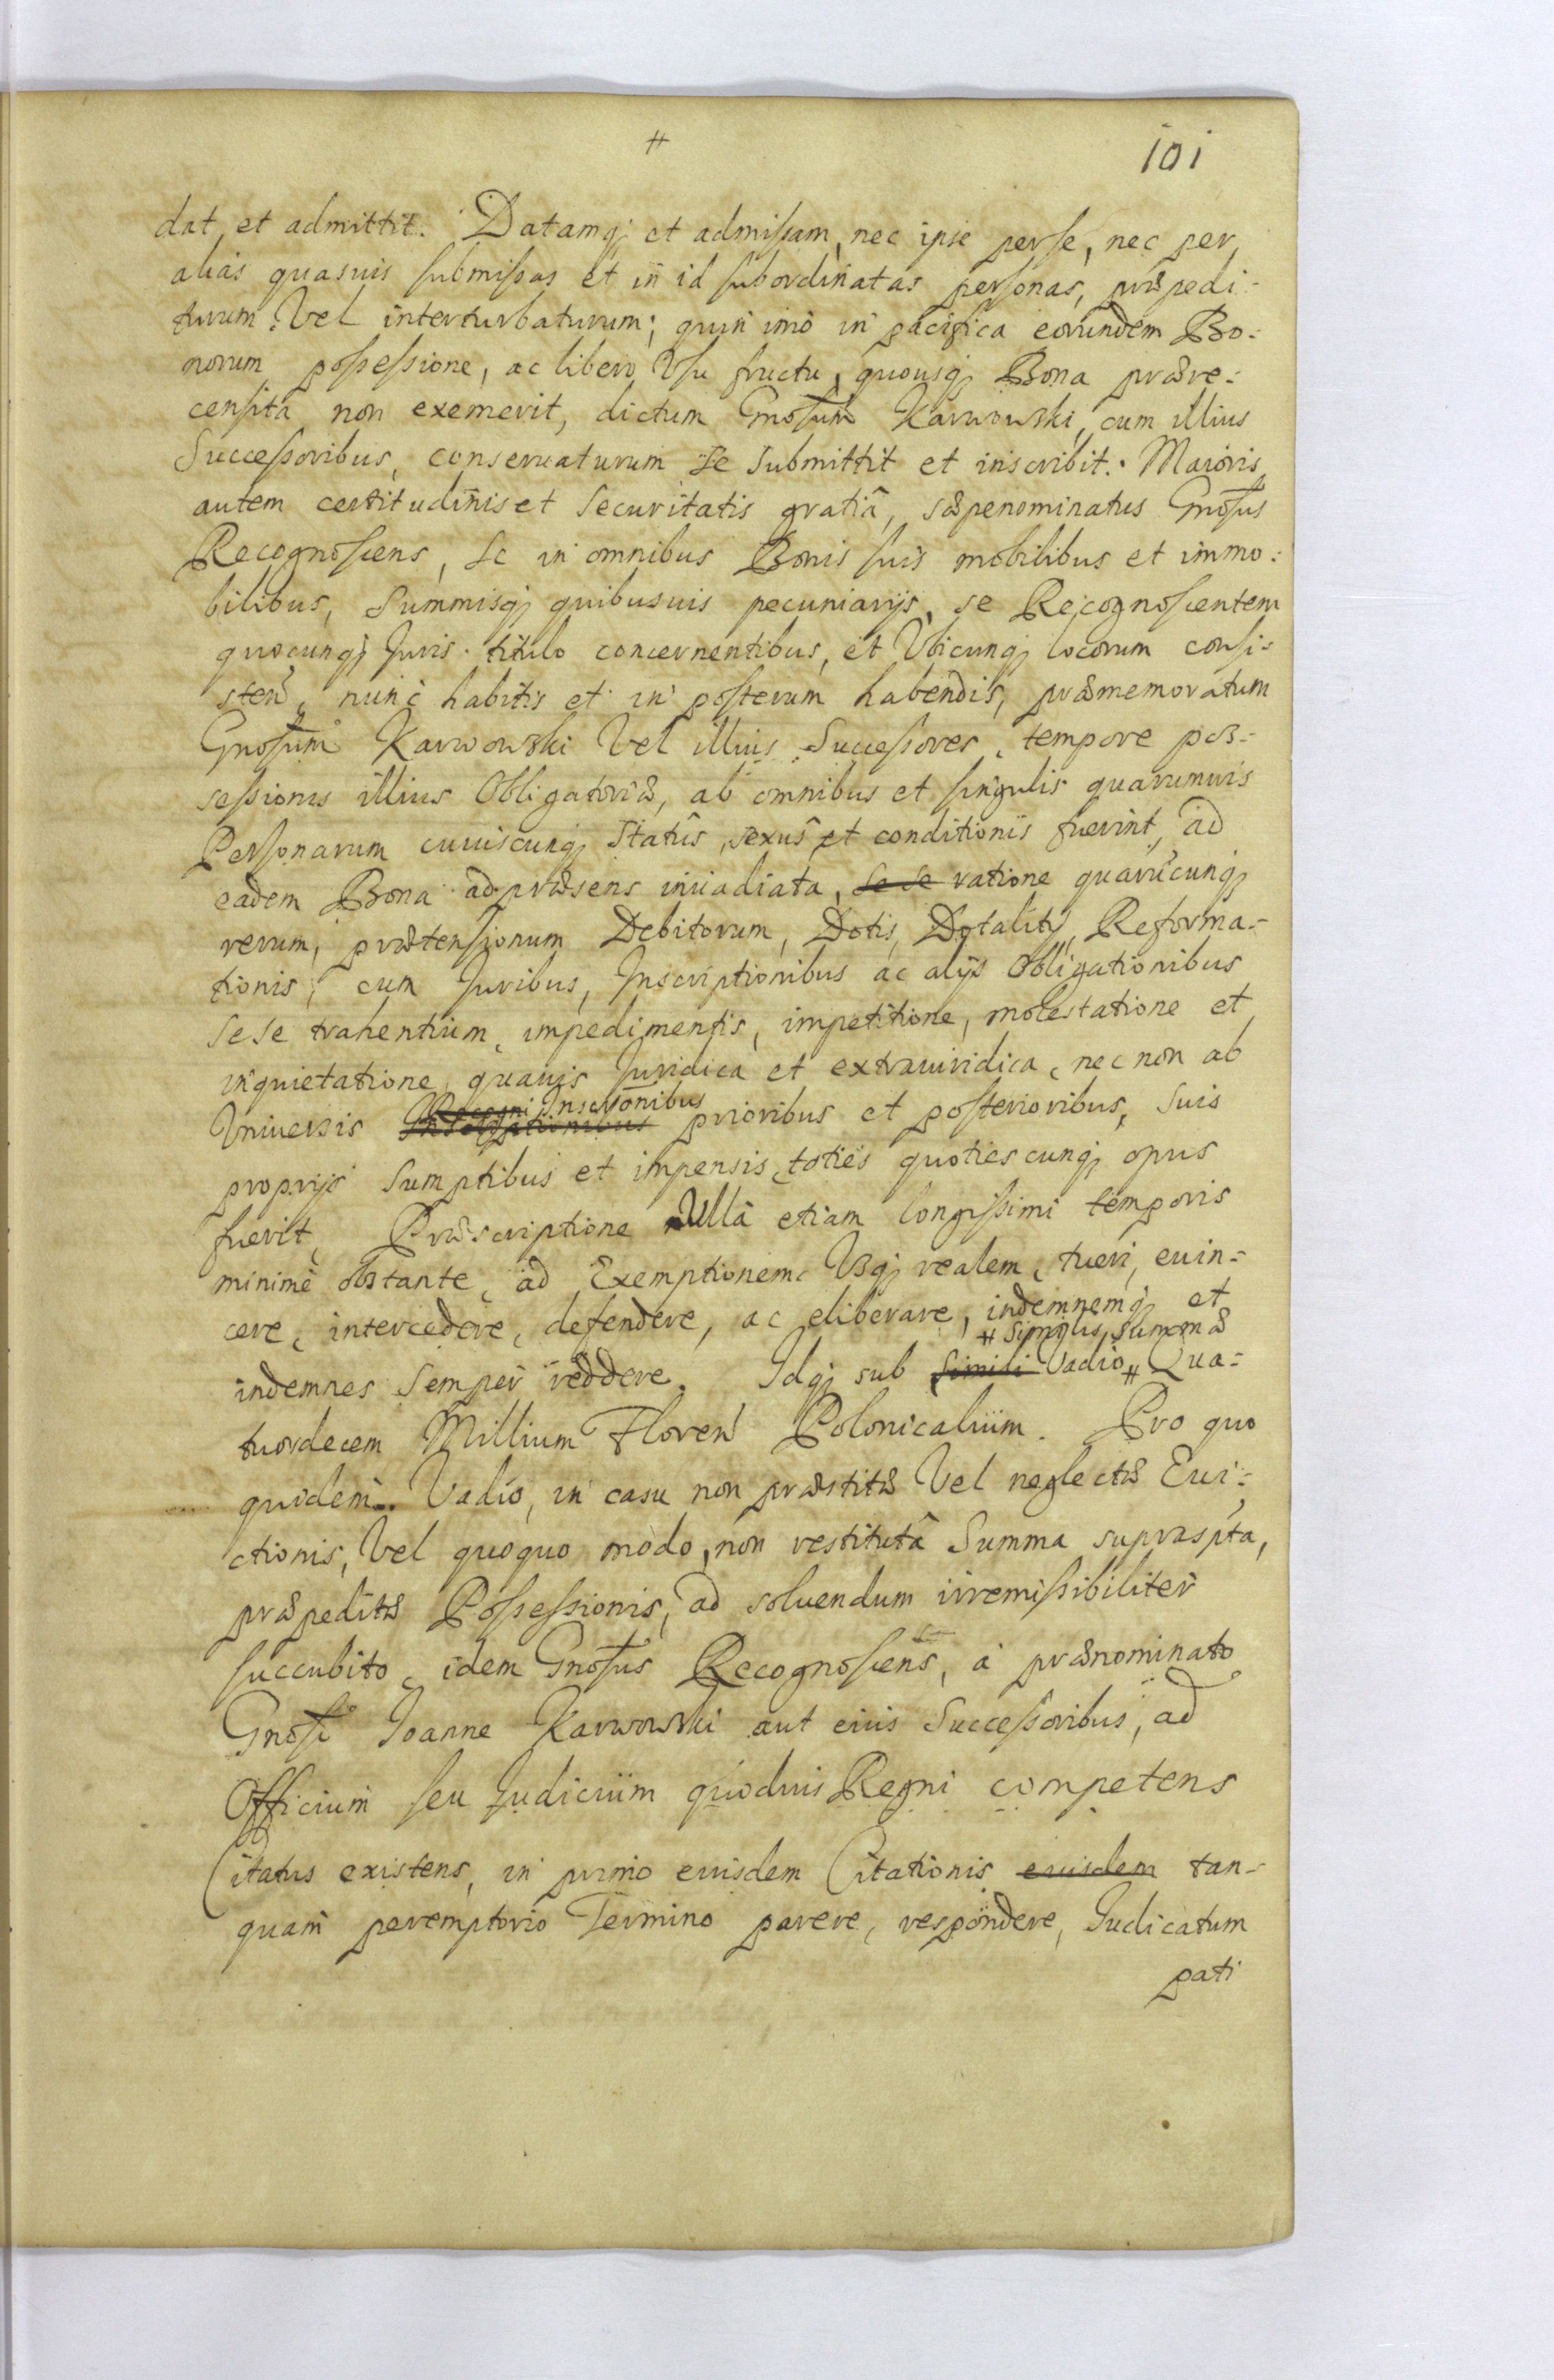 # 101
dat, et admittit. Datamq; et admissam, nec ipse per se, nec per
alias quasuis submissas et in id subordinatas personas, præpedi-
turum Vel interturbaturum; quin imò in pacifica eorundem Bo-
norum possessione, ac libero Vsu fructu, quousq; Bona prære-
censita non exemerit, dictum Gnosum Karwowski, cum illius
Successoribus, conseruaturum se submittit et inscribit. Maioris
autem certitudinis et securitatis gratiâ, sæpenominatus Gnosus
Recognoscens, se in omnibus Bonis suis mobilibus et immo-
bilibus, Summisq; quibusuis pecuniarijs, se Recognoscentem
quocunq; Juris titulo concernentibus, et Vbicunq; locorum consi-
sten, nunc habitis et in posterum habendis, præmemoratum
Gnosum Karwowski Vel illius Successores, tempore pos-
sessionis illius Obligatoriæ, ab omnibus et singulis quarumuis
Personarum cuiuscunq; statûs, sexûs et conditionis fuerint, ad
eadem Bona ad præsens inuadiata, se se ratione quarucunq;
rerum, prætensionum Debitorum, Dotis, Dotalitij, Reforma-
tionis, cum Juribus, Inscriptionibus ac alijs Obligationibus
sese trahentium, impedimentis, impetitione, molestatione et
inquietatione, quauis Juridica et extraiuridica, nec non ab
Recogni Inscronibus
Vniuersis Inscriptionibus prioribus et posterioribus, suis
proprijs sumptibus et impensis, toties quotiescunq; opus
fuerit, Præscriptione Vllâ etiam longissimi temporis
minimè obstante, ad Exemptionem Vsq; realem, tueri, euin-
cere, intercedere, defendere, ac eliberare, indemnemq; et
# Similis summæ
indemnes semper reddere. Idq; sub simili Vadio # Qua-
tuordecem Millium Floren Polonicalium. Pro quo
quidem Vadio, in casu non præstitæ Vel neglectæ Eui-
ctionis, Vel quoquo modo, non restitutâ Summa suprasptа,
præpeditæ Possessionis, ad soluendum irremissibiliter
succubito, idem Gnosus Recognoscens, à prænominato
Gnoso Joanne Karwowski aut eius Successoribus, ad
Officium seu Judicium quoduis Regni competens
Citatus existens, in primo eiusdem Citationis eiusdem tan-
quam peremptorio Termino parere, respondere, Judicatum
pati